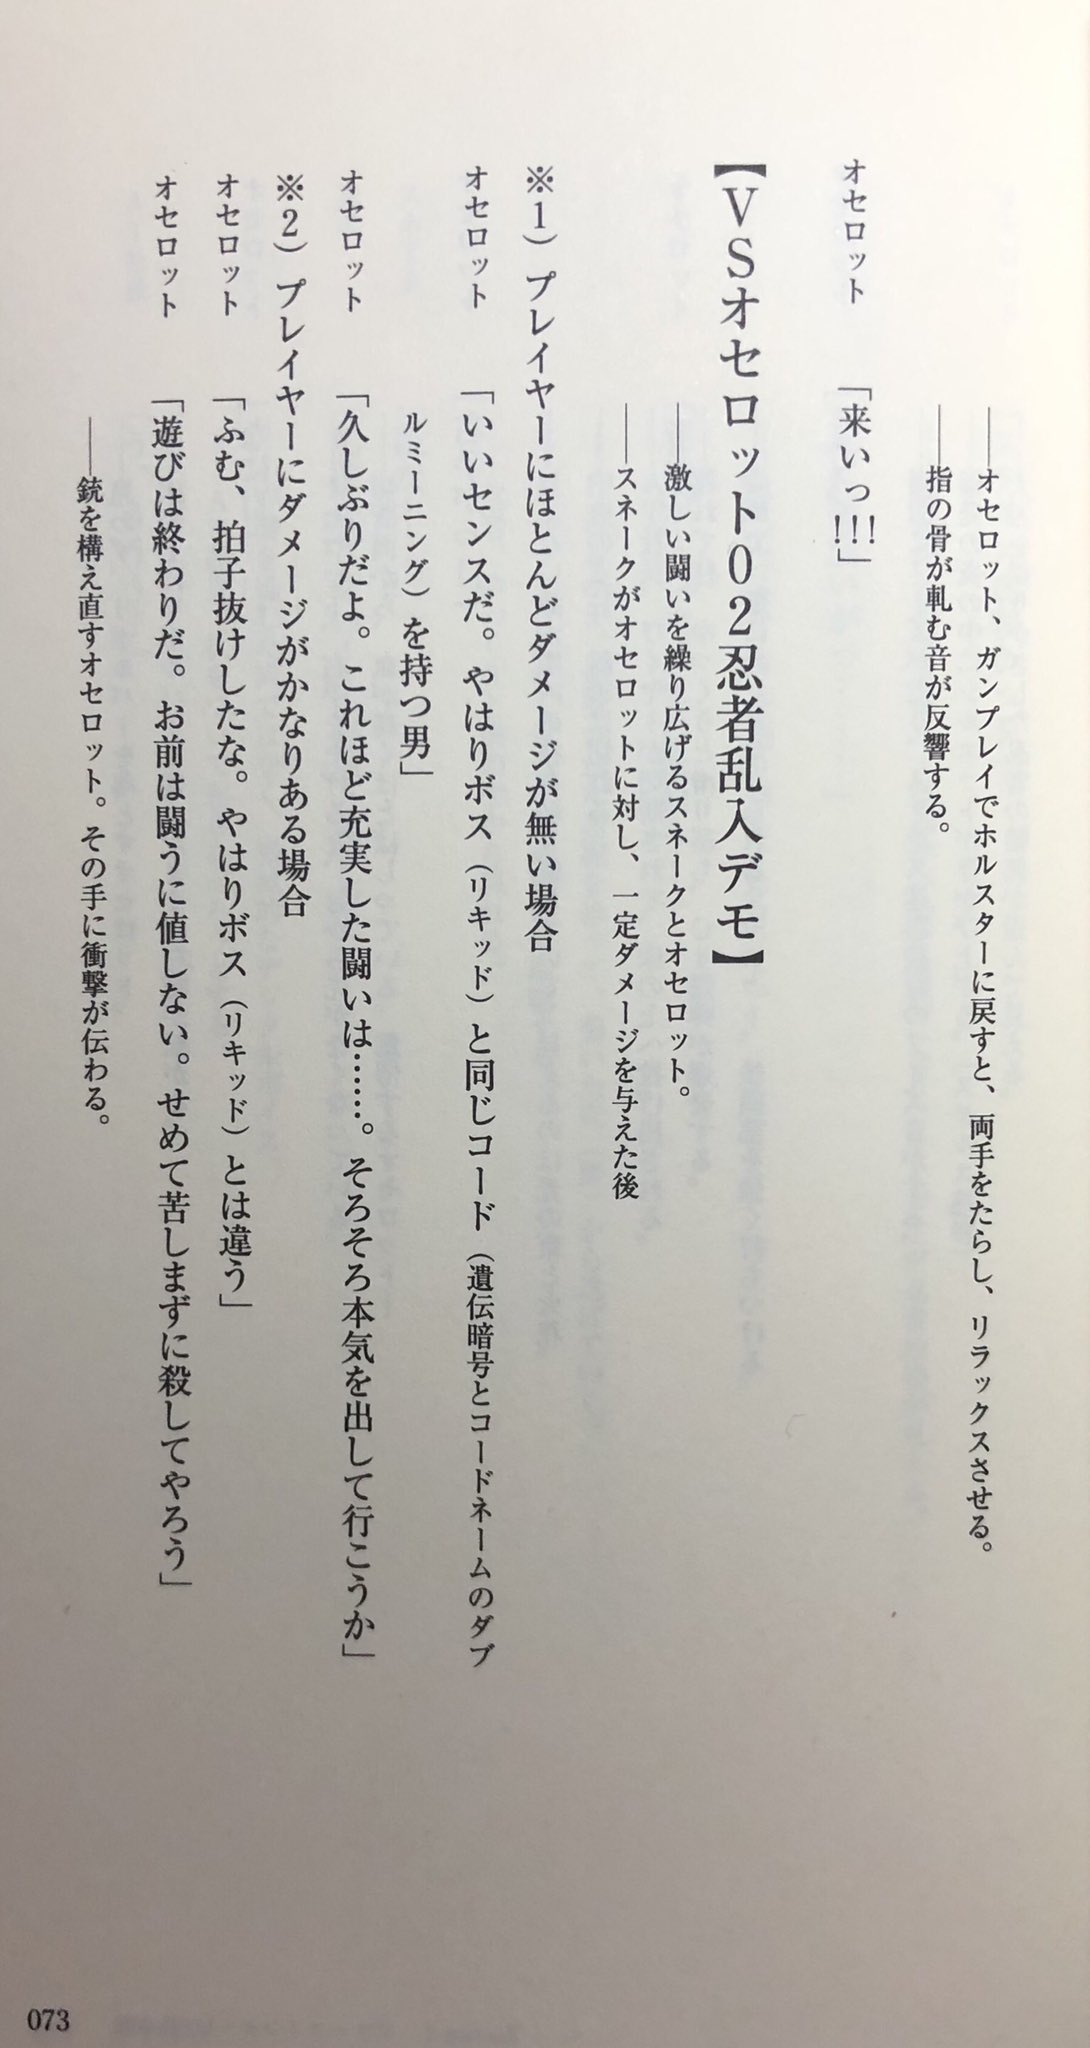 ――オセロット、ガンプレイでホルスターに戻すと、両手をたらし、リラックスさせる。
――指の骨が軋む音が反響する。
オセロット　「来いっ!!!」
【ＶＳオセロット０２忍者乱入デモ】
――激しい闘いを繰り広げるスネークとオセロット。
――スネークがオセロットに対し、一定ダメージを与えた後
※1）プレイヤーにほとんどダメージが無い場合
オセロット　「いいセンスだ。やはりボス（リキッド）と同じコード（遺伝暗号とコードネームのダブ
ルミーニング）を持つ男」
オセロット　「久しぶりだよ。これほど充実した闘いは……。そろそろ本気を出して行こうか」
※2）プレイヤーにダメージがかなりある場合
オセロット　「ふむ、拍子抜けしたな。やはりボス（リキッド）とは違う」
オセロット　「遊びは終わりだ。お前は闘うに値しない。せめて苦しまずに殺してやろう」
――銃を構え直すオセロット。その手に衝撃が伝わる。
073